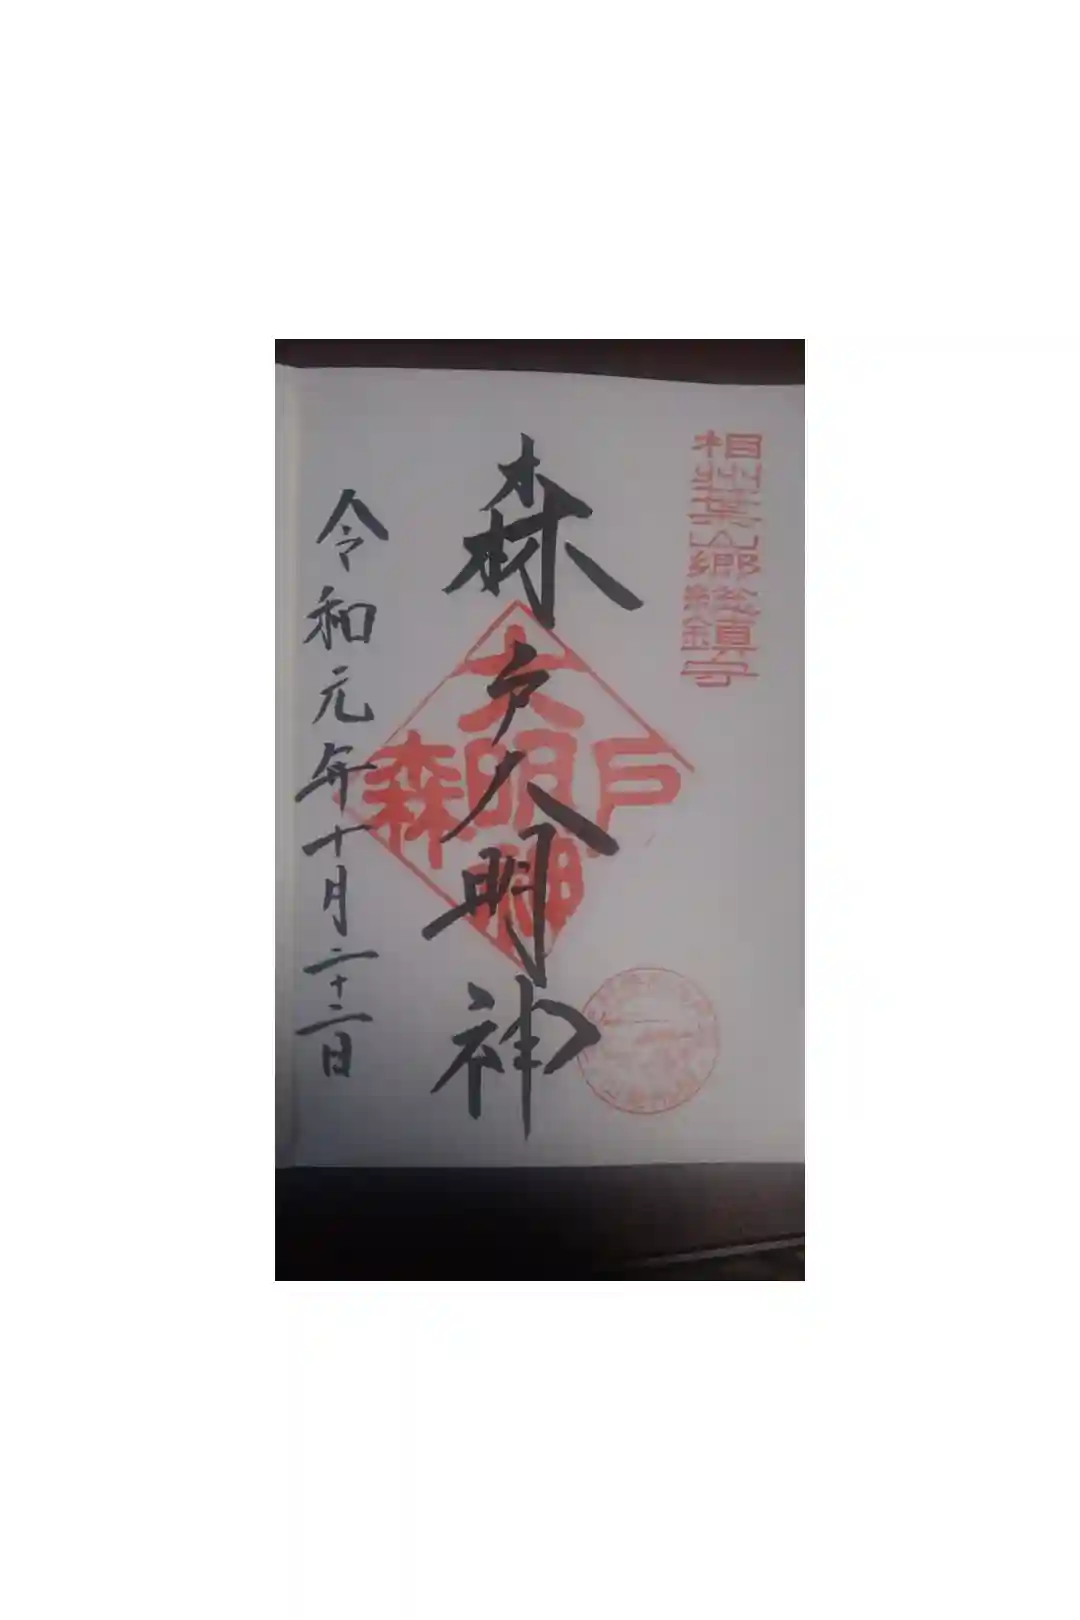 相州葉山郷総鎮守
森戸大明神
森戸
大明神
令和元年十月二十二日